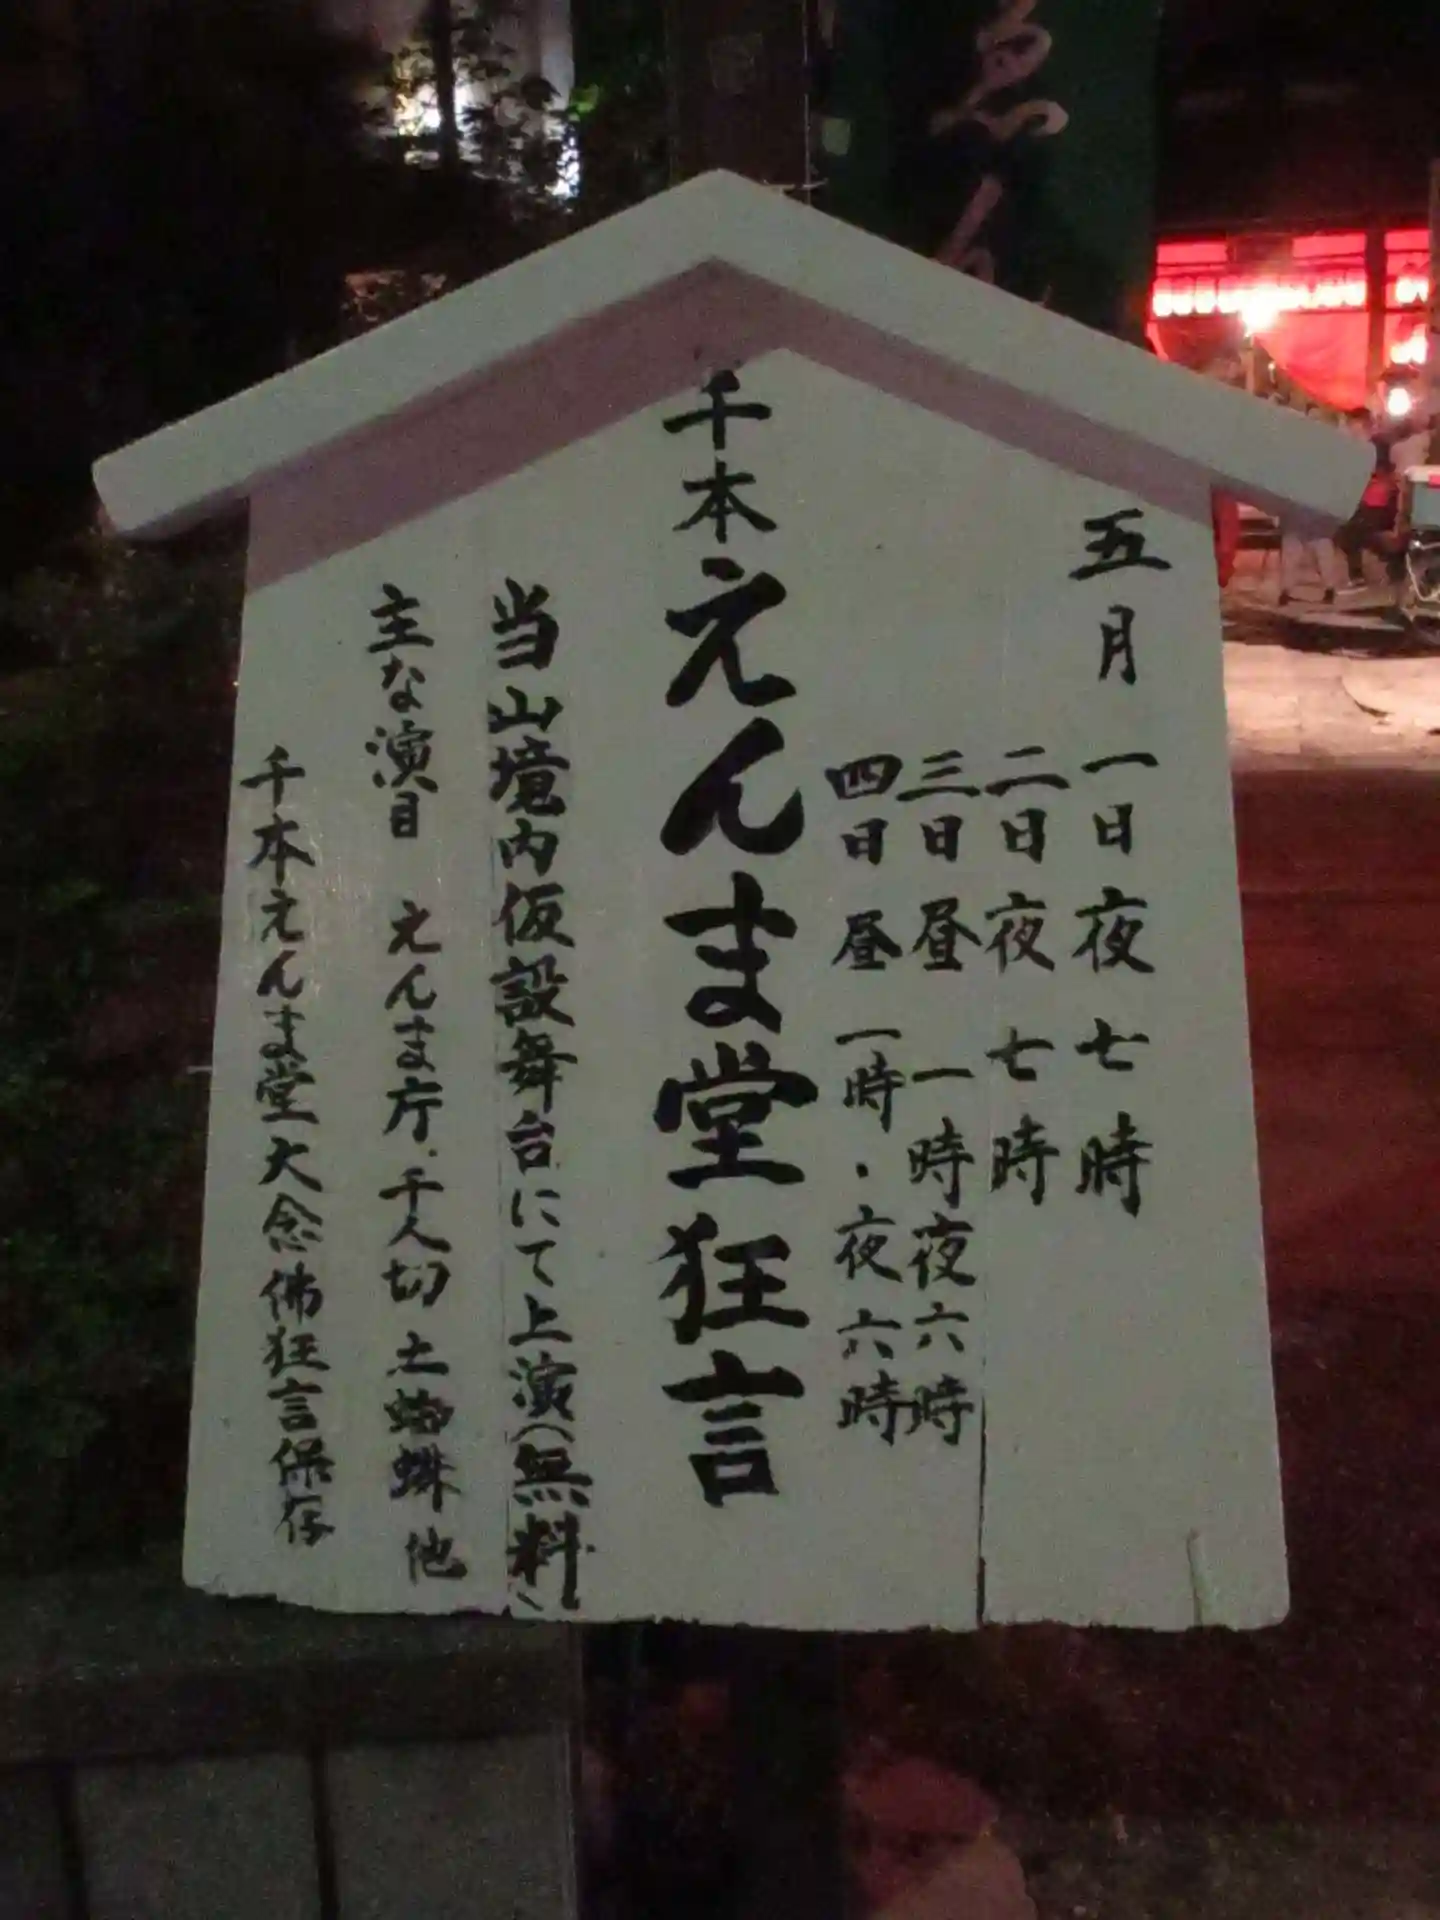 五月
一日夜七時
二日夜七時
三日昼一時夜六時
四日昼一時・夜六時
千本えんま堂狂言
当山境内仮設舞台にて上演(無料)
主な演目 えんま庁・千人切 土蜘蛛 他
千本えんま堂大念佛狂言保存
ゑん